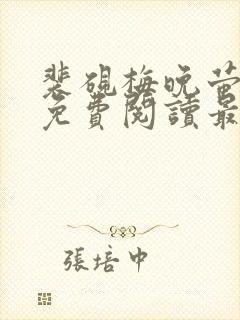 裴硯梅晚螢
免費閱讀最
張培中